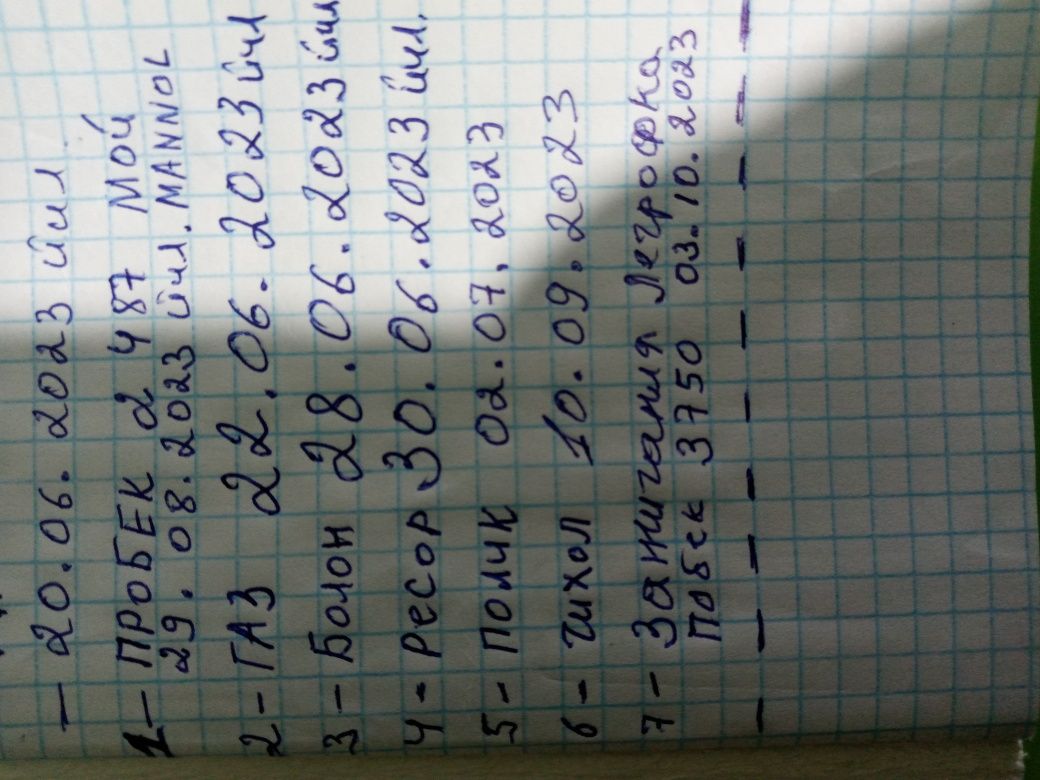 — 20.06.2023 йил
1 — ПРОБЕК 2 487 МОЙ
29.08.2023 йил. MANNOL
2 — ГАЗ 22.06.2023 йил
3 — Болон 28.06.2023 йил
4 - Ресор 30.06.2023 йил.
5 - Полик 02.07.2023
6 - Чихол 10.09.2023
7 - Зажигания Легрофка
Побек 3750 03.10.2023